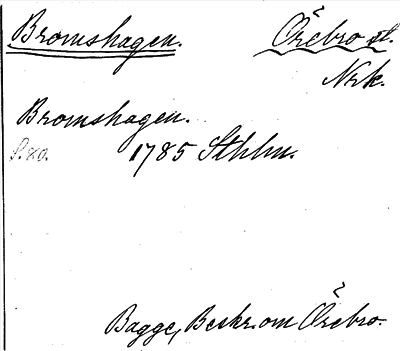 Bromshagen. Örebro st.
Nrk.
Bromshagen.
S. 20. 1785 Sthlm.
Bagge, Beskr. om Örebro.